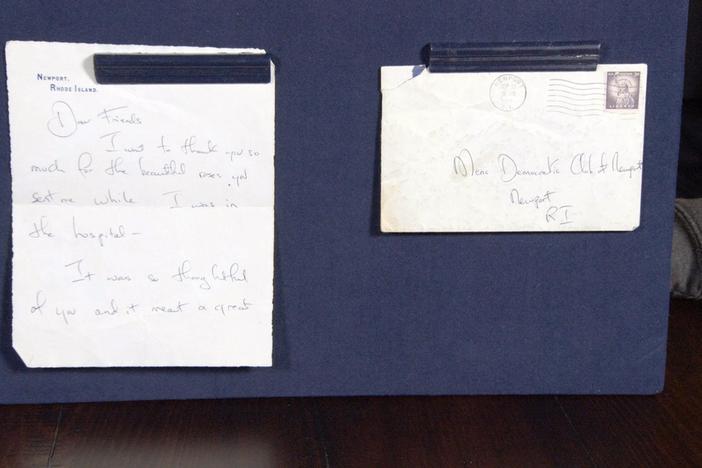 NEWPORT.
RHODE ISLAND.
Dear Friends
I want to thank you so
much for the beautiful roses you
sent me while I was in
the hospital—
It was so thoughtful
of you and it meant a great
NEWPORT
R.I.
LIBERTY
Mens Democratic Club of Newport
Newport
RI